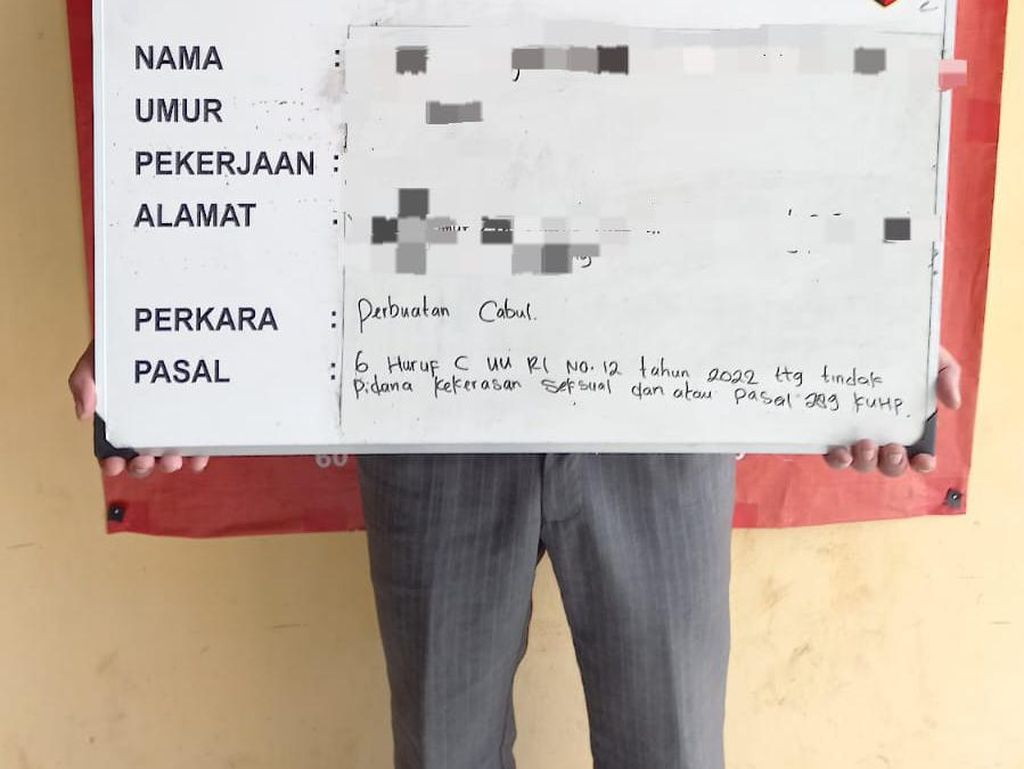 NAMA :
UMUR
PEKERJAAN :
ALAMAT :
PERKARA : Perbuatan Cabul.
PASAL : 6 Huruf C UU RI NO. 12 tahun 2022 ttg tindak
Pidana kekerasan seksual dan atau pasal 289 KUHP.
60